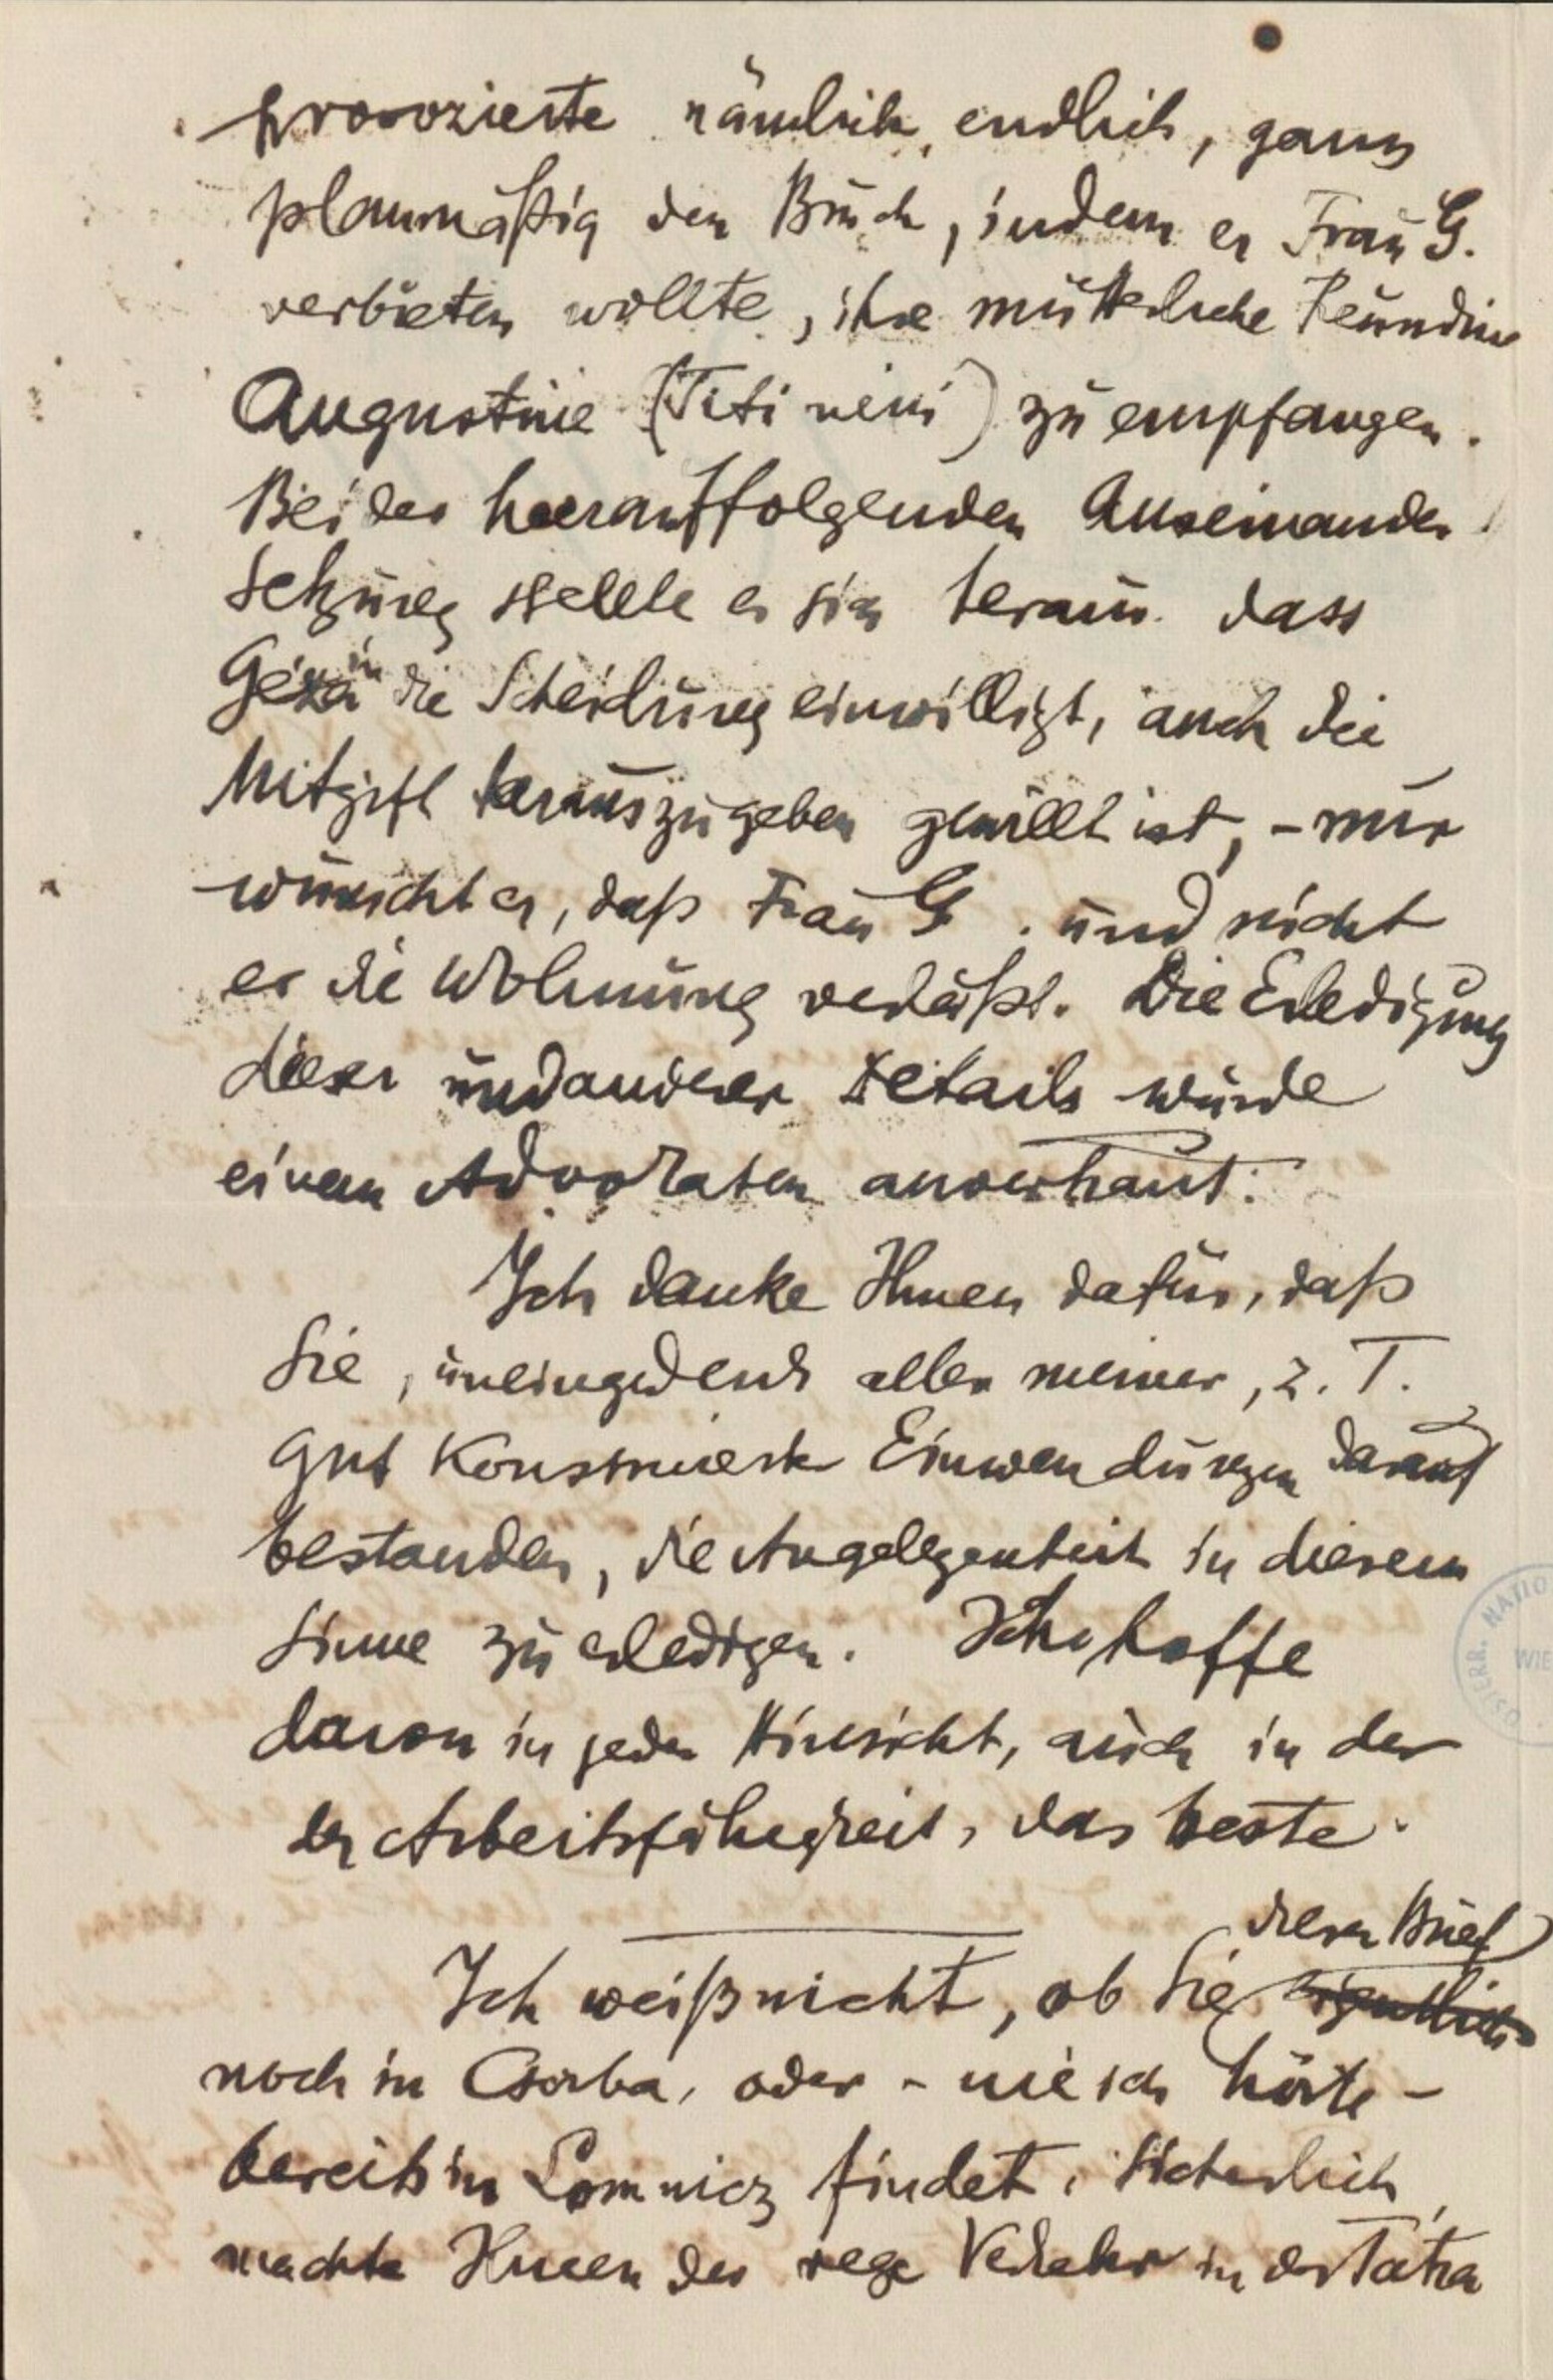 provozierte nämlich, endlich, ganz
planmäßig den Bruch, indem er Frau G.
verbieten wollte, ihre mütterliche Freundin
Augustine (Titi néni) zu empfangen.
Bei der hierauffolgenden Auseinander
setzung stellte es sich heraus dass
Géza in die Scheidung einwilligt, auch die
Mitgift herauszugeben gewillt ist, – nur
wünscht er, daß Frau G. und nicht
er die Wohnung verläßt. Die Erledigung
dieser und anderer Details wurde
einem Advokaten anvertraut.
Ich danke Ihnen dafür, daß
Sie, uneingedenk aller meiner, z. T.
gut konstruierte Einwendungen darauf
bestanden, die Angelegenheit in diesem
Sinne zu erledigen. Ich hoffe
davon in jeder Hinsicht, auch in der
der Arbeitsfähigkeit, das beste.
Ich weiß nicht, ob Sie dieser Brief eigentlich
noch in Csorba, oder – wie ich hörte –
bereits in Lomnicz findet. Sicherlich
machte Ihnen der rege Verkehr in der Tátra
ÖSTERR. NATIO
WIE